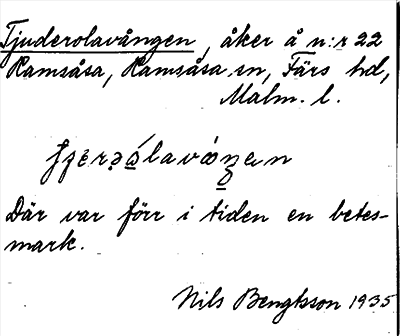 Tjuderolavången, åker å n:r 22
Ramsåsa, Ramsåsa sn, Färs hd,
Malm. l.
Där var förr i tiden en betes-
mark.
Nils Bengtsson 1935